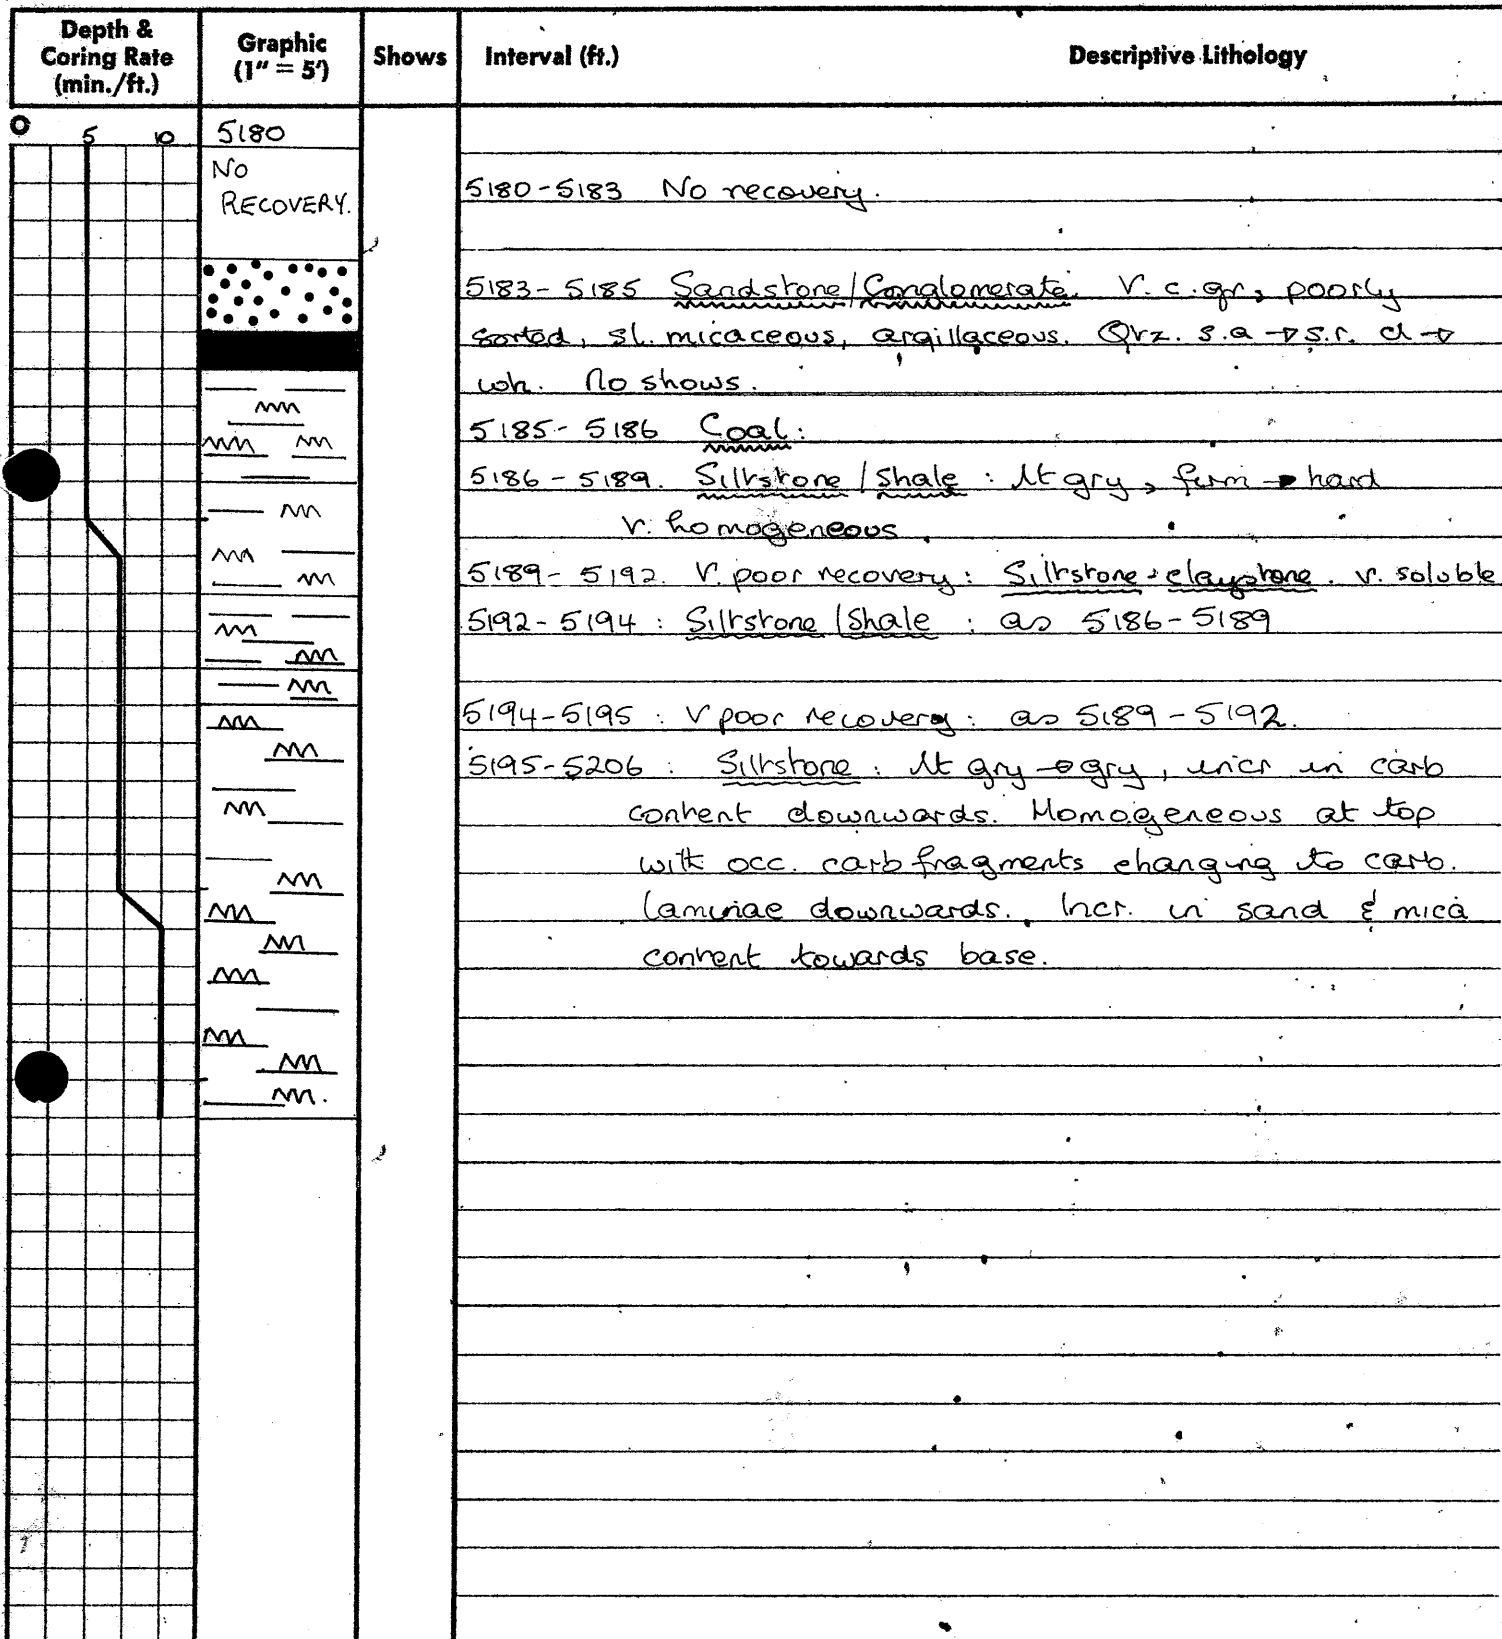 Depth &
Coring Rate
(min./ft.)
Graphic
(1" = 5')
Shows
Interval (ft.)
Descriptive Lithology
0 5 10
5180
No
RECOVERY.
5180-5183 No recovery.
5183-5185 Sandstone/Conglomerate. V.c.gr, poorly
sorted, sl. micaceous, argillaceous. Qtz. s.a → s.r. cl →
wh. No shows.
5185-5186 Coal:
5186-5189. Siltstone/Shale: lt gry, firm → hard
v. homogeneous.
5189-5192. V. poor recovery: Siltstone-claystone. v. soluble
5192-5194: Siltstone/Shale: as 5186-5189
5194-5195: V poor recovery: as 5189-5192.
5195-5206: Siltstone: lt gry → gry, incr in carb
content downwards. Homogeneous at top
with occ. carb fragments changing to carb.
laminae downwards. Incr. in sand & mica
content towards base.